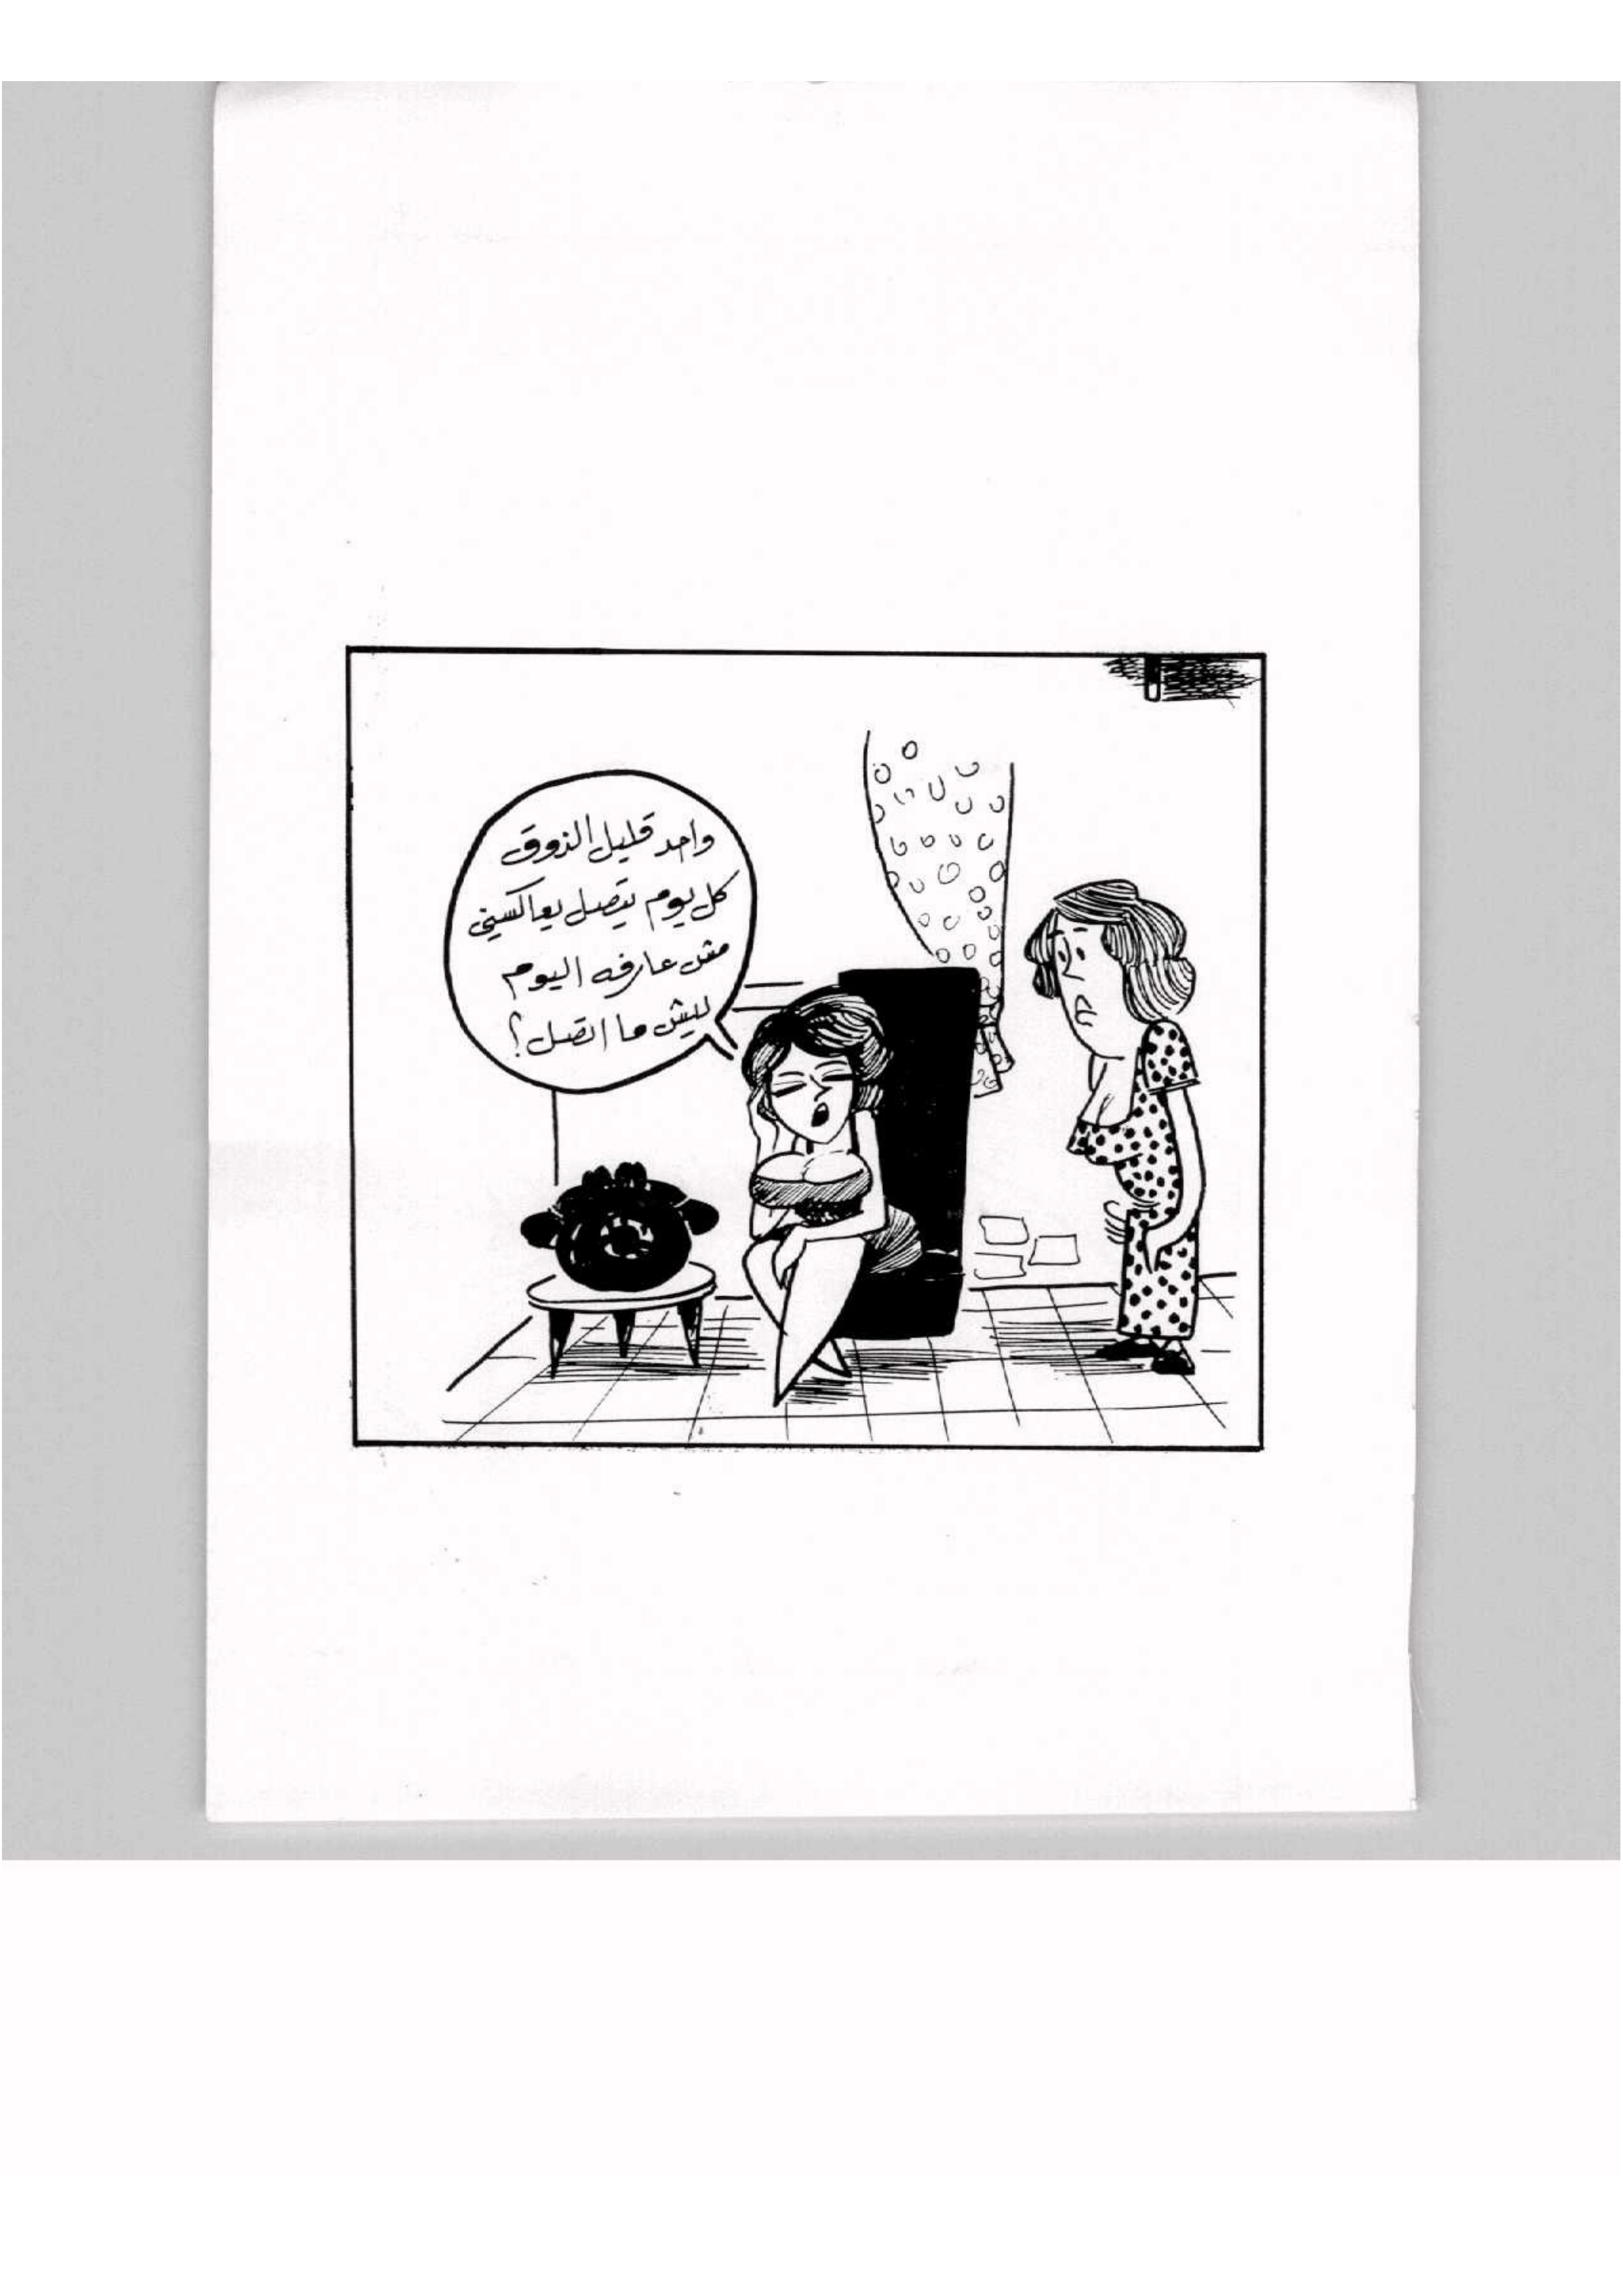 واحد قليل الذوق
كل يوم يتصل يعاكسني
مش عارفه اليوم
ليش ما اتصل؟